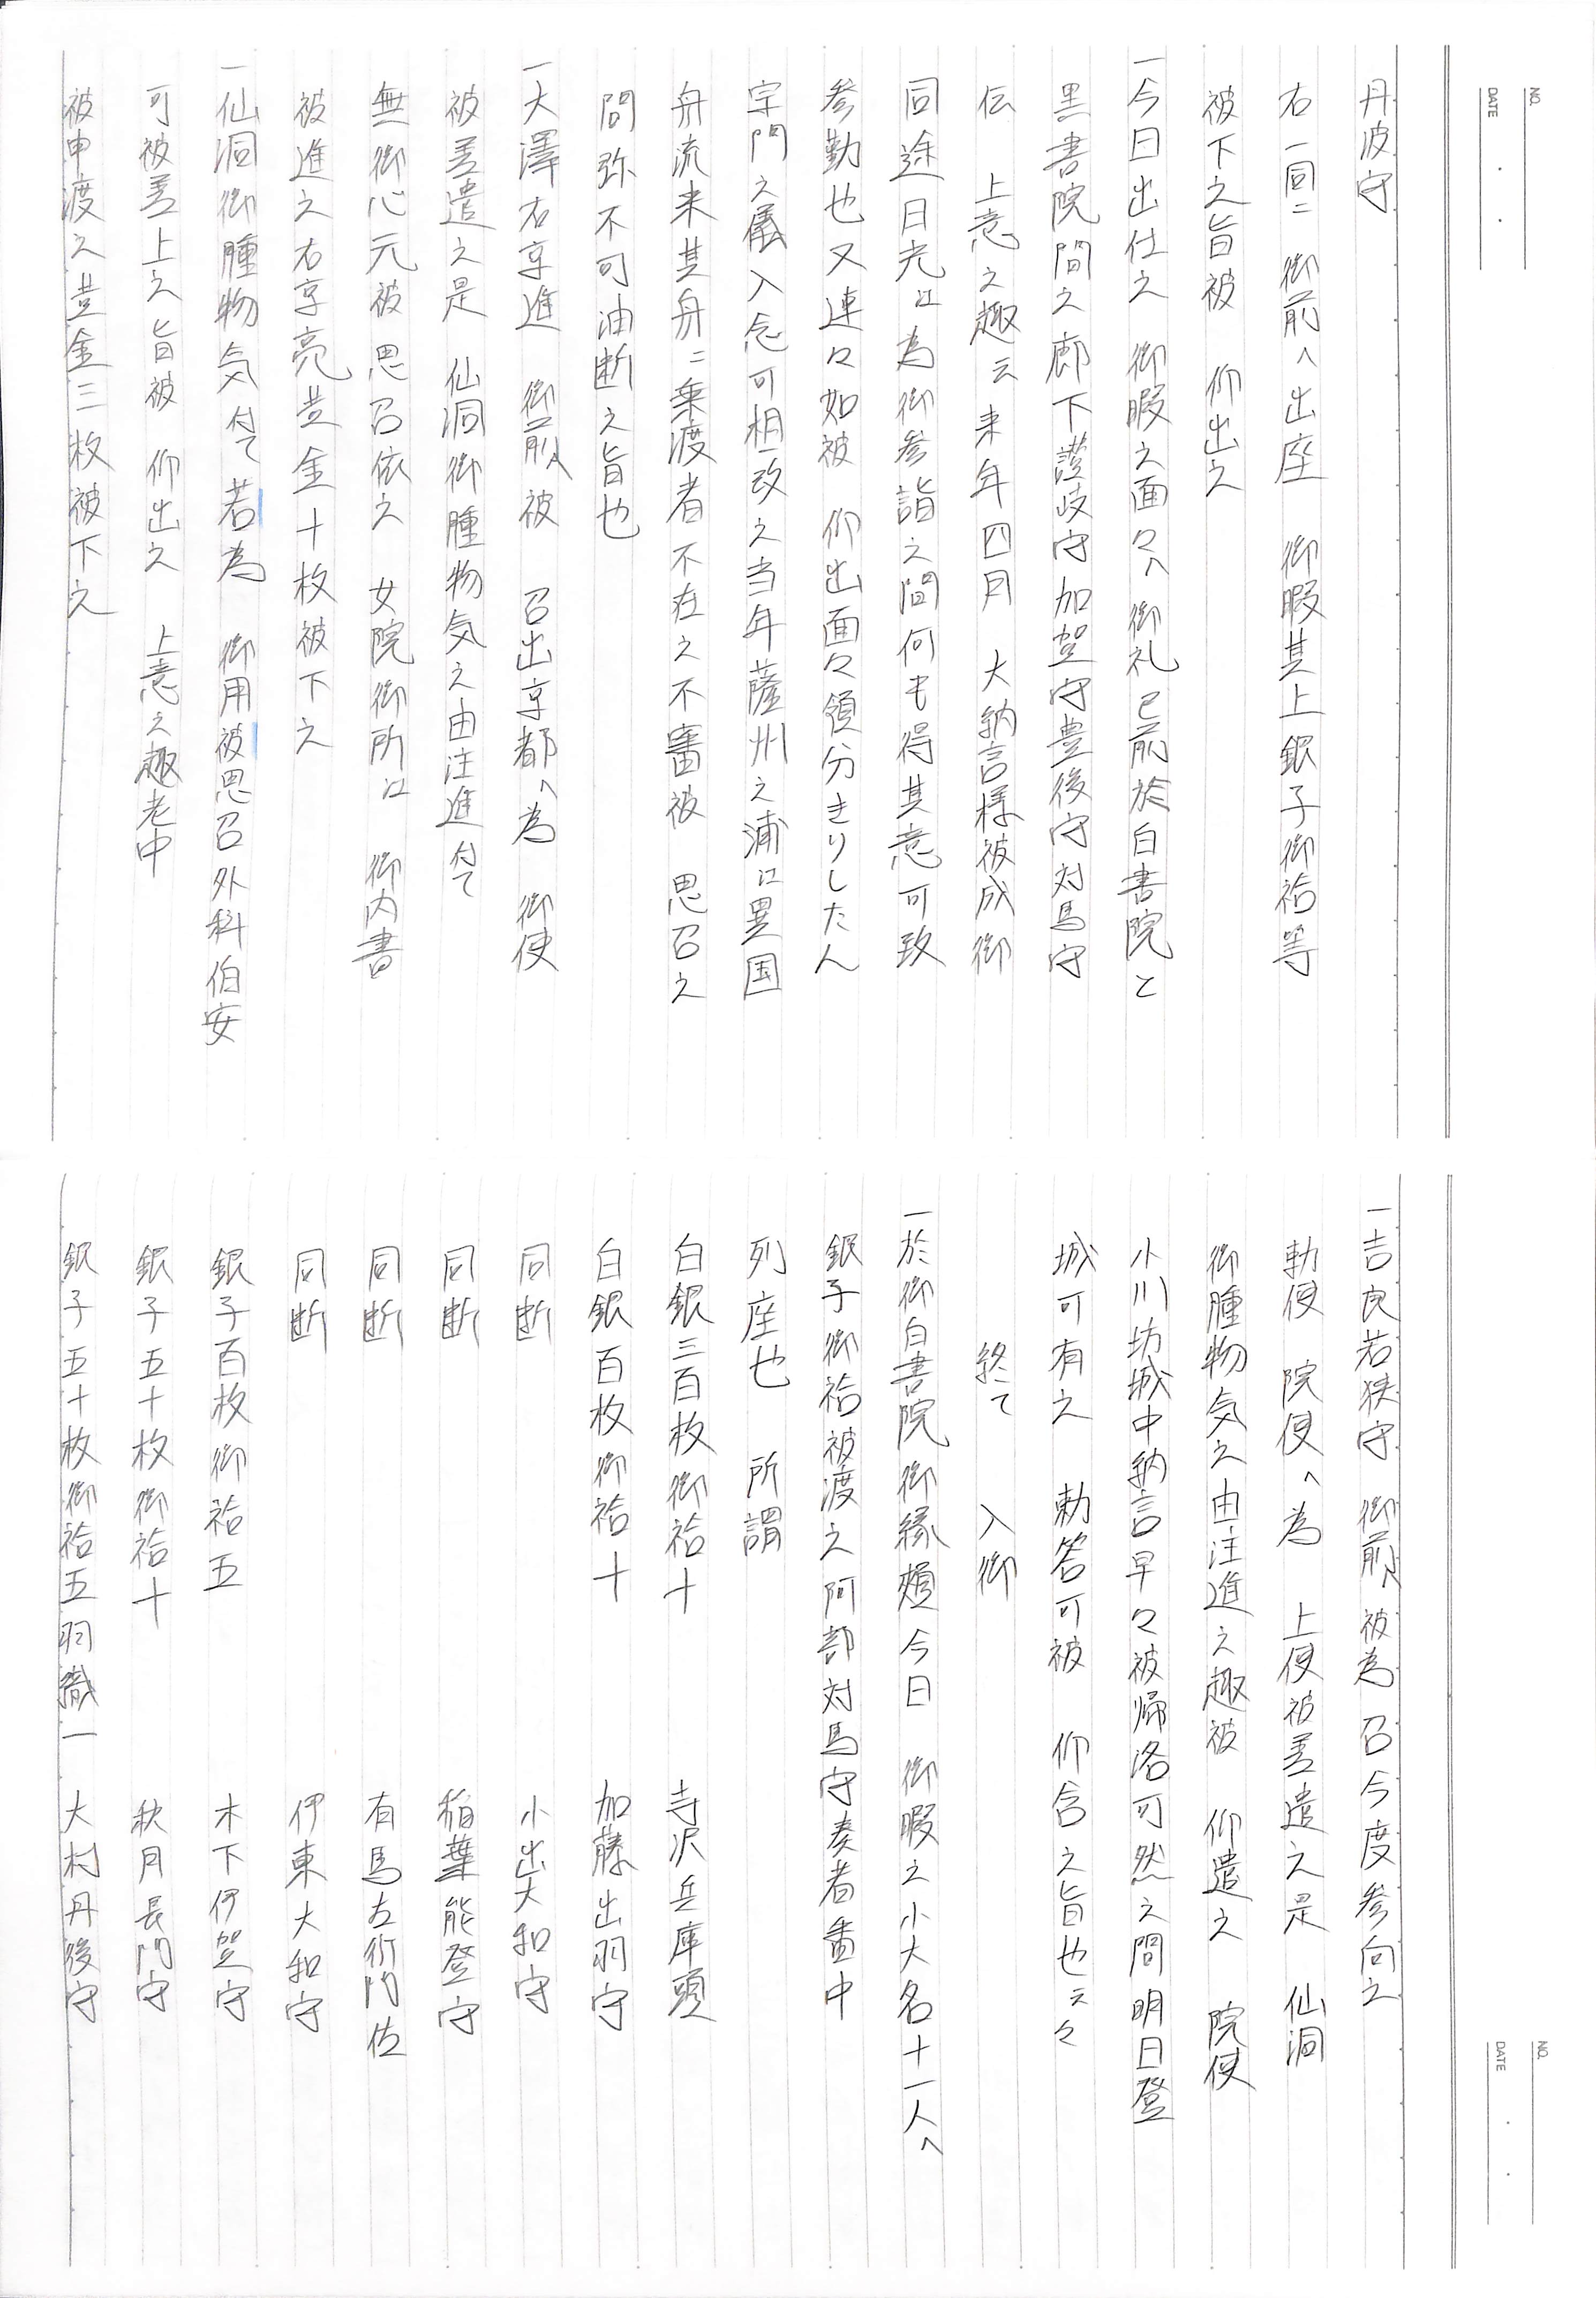 NO.
DATE
丹波守
右一同ニ　御前ヘ出座　御暇其上銀子御袷等
被下之旨被　仰出之
一今日出仕之　御暇之面々ヘ御礼已前於白書院と
黒書院間之廊下讃岐守加賀守豊後守対馬守
伝　上意之趣云来年四月　大納言様被成御
同途日光江為御参詣之間何も得其意可致
参勤也又連々如被　仰出面々領分きりしたん
宗門之儀入念可相改之当年薩州之浦江異国
舟流来其舟ニ乗渡者不在之不審被　思召之
間弥不可油断之旨也
一大澤右京進　御前ヘ被　召出京都ヘ為　御使
被差遣之是　仙洞御腫物気之由注進付て
無御心元被思召依之　女院御所江　御内書
被進之右京亮并金十枚被下之
一仙洞御腫物気付て若為　御用被思召外科伯安
可被差上之旨被　仰出之　上意之趣老中
被申渡之并金三枚被下之
NO.
DATE
一吉良若狭守　御前ヘ被為召今度参向之
勅使　院使ヘ為　上使被差遣之是　仙洞
御腫物気之由注進之趣被　仰遣之　院使
小川坊城中納言早々被帰洛可然之間明日登
城可有之　勅答可被　仰含之旨也云々
終て　入御
一於御白書院御縁頬今日　御暇之小大名十一人ヘ
銀子御袷被渡之阿部対馬守奏者番中
列座也　所謂
白銀三百枚御袷十　寺沢兵庫頭
白銀百枚御袷十　加藤出羽守
同断　小出大和守
同断　稲葉能登守
同断　有馬左衛門佐
同断　伊東大和守
銀子百枚御袷五　木下伊賀守
銀子五十枚御袷十　秋月長門守
銀子五十枚御袷五羽織一　大村丹後守